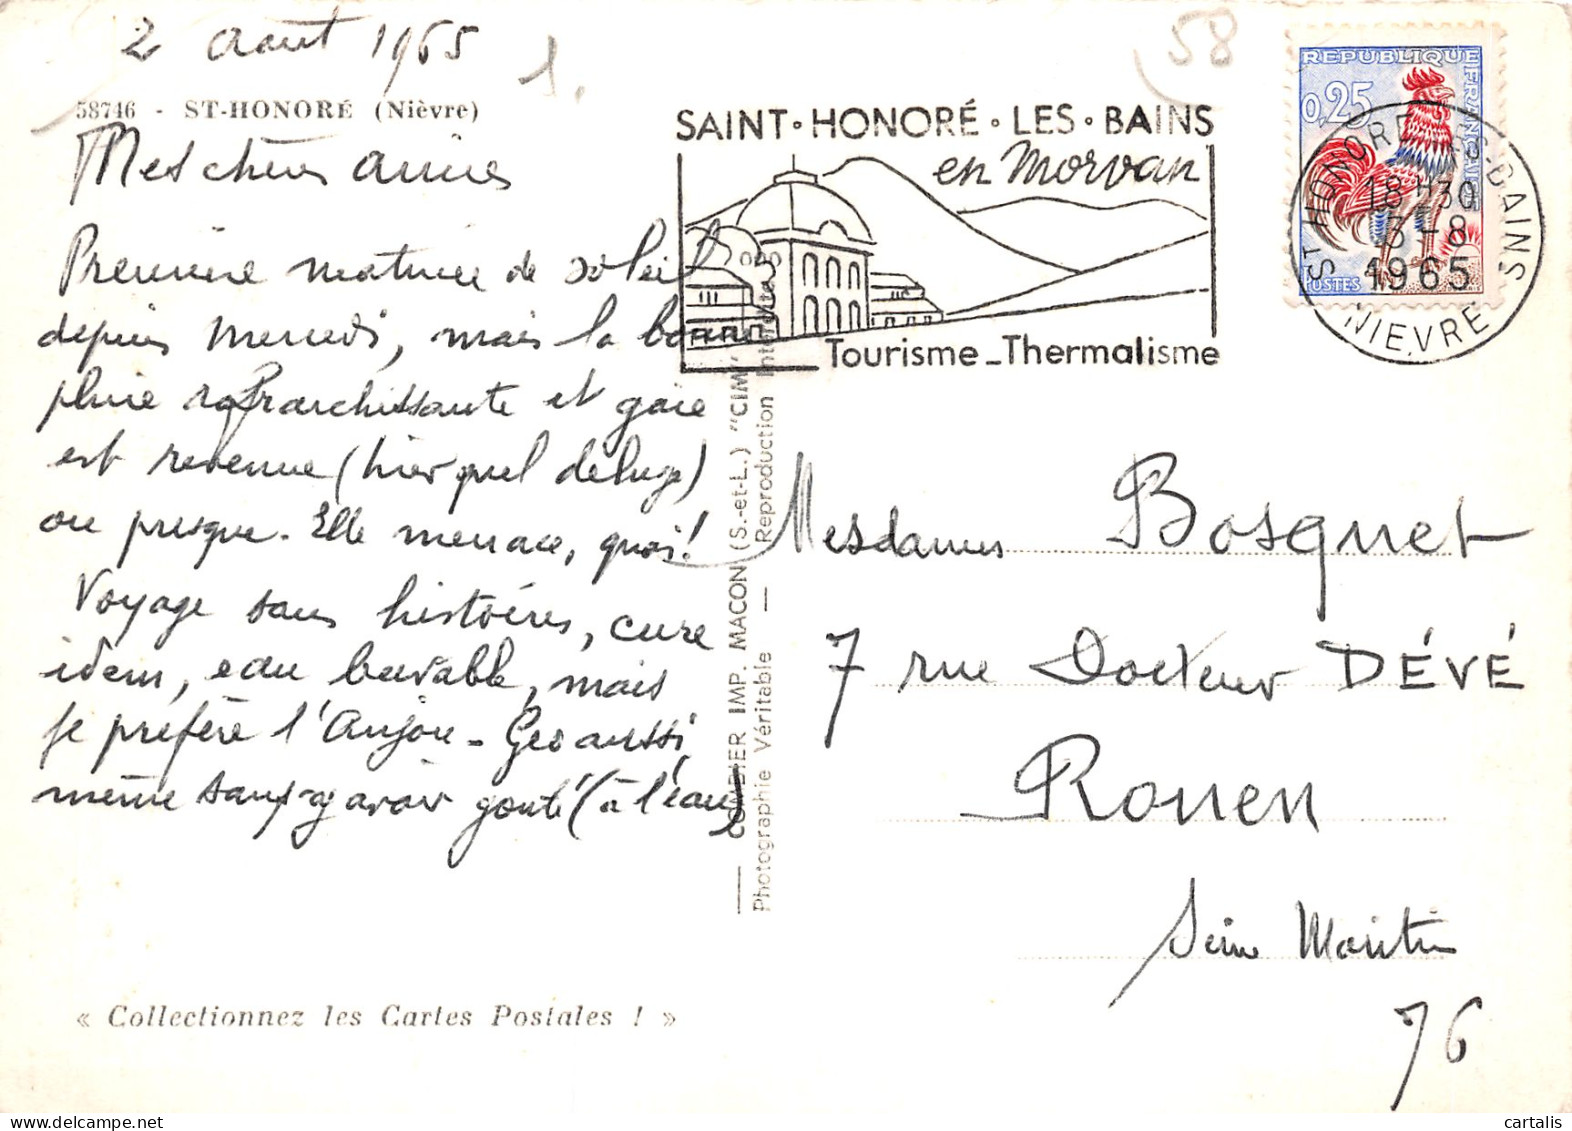 2 août 1965
1.
58
58746 - ST-HONORÉ (Nièvre)
Mes chères amies
Première matinée de soleil
depuis Mercredi, mais la bonne
pluie rafraichissante et gaie
est revenue (hier quel déluge)
ou presque. Elle menace, quoi!
Voyage sans histoires, cure
idem, eau buvable, mais
je préfère l'Anjou - Geo aussi
même sans y avoir goûté (à l'eau)
« Collectionnez les Cartes Postales ! »
COMBIER IMP. MACON (S.-et-L.) "CIM"
Photographie Véritable — Reproduction Interdite
SAINT·HONORÉ·LES·BAINS
en Morvan
Tourisme-Thermalisme
REPUBLIQUE FRANÇAISE
0,25
POSTES
ST HONORE LES-BAINS
18 H30
3-8
1965
NIEVRE
Mesdames Bosquet
7 rue Docteur DÉVÉ
Rouen
Seine Maritime
76
cartalis